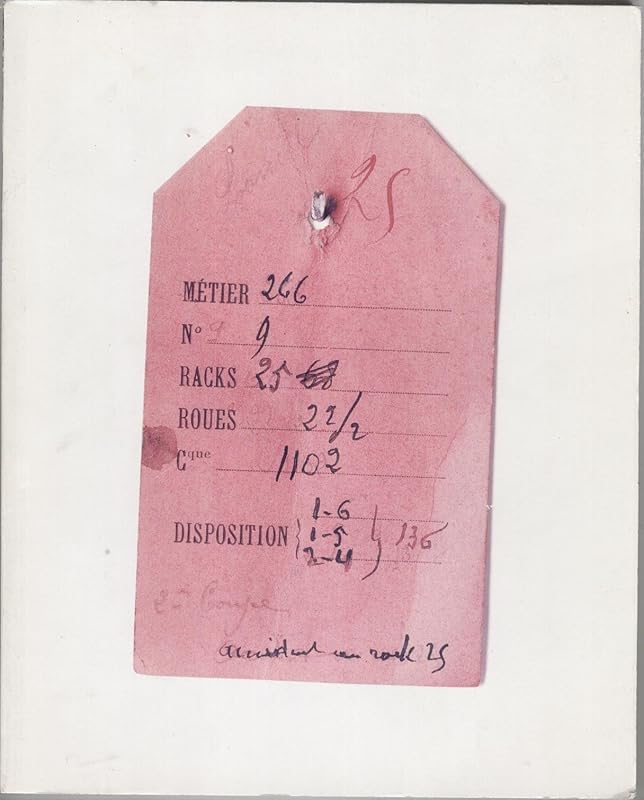 25
MÉTIER 266
N° 9
RACKS 25
ROUES 22/2
Cque 1102
DISPOSITION { 1-6
1-5 } 136
2-4
2e Coupe
accident au rack 25